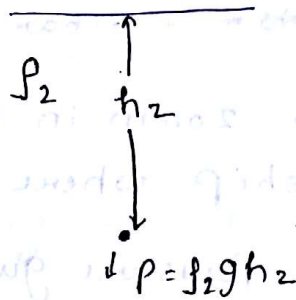 ρ₂
h₂
P = ρ₂gh₂